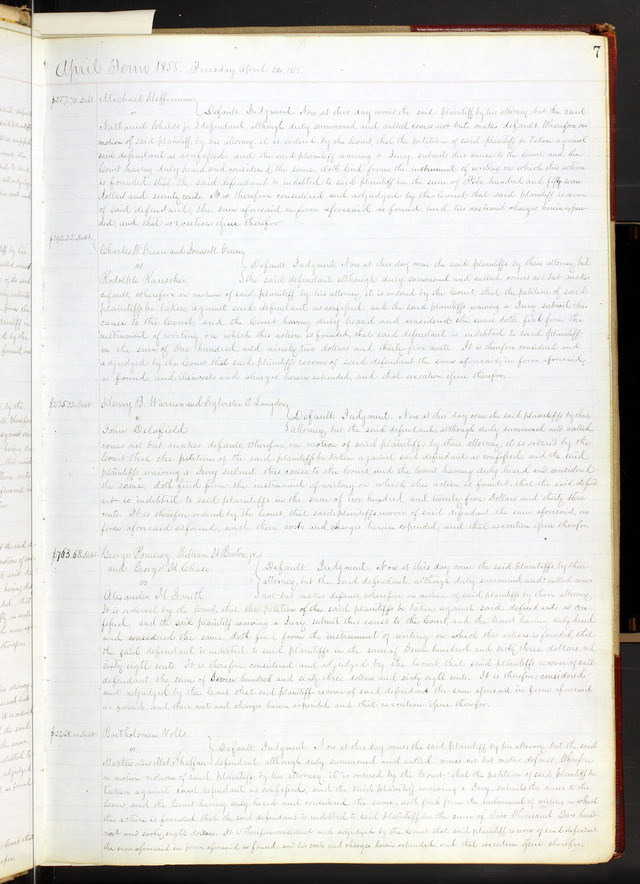 7
April Term 1855. Tuesday April 24, 1855
$557.70 Debt Michael Heffernan
vs
Default Judgment. Now at this day comes the said plaintiff by his attorney, but the said
Nathaniel Childs jr defendant, although duly summoned and called comes not but makes default. Wherefore, on
motion of said plaintiff, by his attorney, it is ordered by the Court that the petition of said plaintiff be taken against
said defendant as confessed, and the said plaintiff waiving a Jury, submits this cause to the Court, and the
Court having duly heard and considered the same, doth find from the instrument of writing on which this action
is founded, that the said defendant is indebted to said plaintiff in the sum of Five hundred and fifty seven
dollars and seventy cents. It is therefore considered and adjudged by the Court, that said plaintiff recover
of said defendant, the sum aforesaid in form aforesaid as found, and his costs and charges herein expen-
ded, and that execution issue therefor.
Debt
Charles W. Green and Green
vs
Default Judgment Now at this day come the said plaintiffs by their attorney, but
Rodolph Rauscher the said defendant although duly summoned and called comes not but makes
default, wherefore on motion of said plaintiff by his attorney, it is ordered by the Court, that the petition of said
plaintiffs be taken against said defendant as confessed and the said plaintiffs waiving a Jury submit this
cause to the Court, and the Court having duly heard and considered the same doth find from the
instrument of writing on which this action is founded, that said defendant is indebted to said plaintiff
in the sum of One hundred and ninety two dollars and thirty five cents. It is therefore considered and
adjudged by the Court that said plaintiffs recover of said defendant the sum aforesaid, in form aforesaid,
as found, and their costs and charges herein expended, and that execution issue therefor.
Debt Henry B. Warner and Sylvester Langdon
vs
Default Judgment. Now at this day come the said plaintiffs by their
John Delafield attorney, but the said defendant, although duly summoned and called
comes not but makes default, Wherefore, on motion of said plaintiffs by their attorney, it is ordered by the
Court that the petition of the said plaintiffs be taken against said defendant as confessed, and the said
plaintiffs waiving a Jury submit this cause to the Court, and the Court having duly heard and considered
the same, doth find from the instrument of writing on which this action is founded, that the said defend-
ant is indebted to said plaintiffs in the sum of two hundred and twenty five Dollars and thirty three
cents. It is therefore ordered by the Court, that said plaintiffs recover of said defendant the sum aforesaid, in
form aforesaid as found, and their costs and charges herein expended, and that execution issue therefor.
$763.68 Debt George Pomeroy, William H. jr,
and George H. Chase
vs
Default Judgment. Now at this day come the said plaintiffs, by their
attorney, but the said defendant, although duly summoned and called comes
Alexander H. Smith not but makes default, wherefore on motion of said plaintiffs by their attorney,
It is ordered by the Court, that the petition of the said plaintiffs be taken against said defendant as con-
fessed, and the said plaintiff waiving a Jury submit this cause to the Court, and the Court having duly heard
and considered the same doth find from the instrument of writing on which this action is founded, that
the said defendant is indebted to said plaintiffs in the sum of Seven hundred and sixty three dollars and
sixty eight cents. It is therefore considered and adjudged by the Court that said plaintiffs recover of said
defendant the sum of Seven hundred and sixty three dollars and sixty eight cents. It is therefore considered
and adjudged by the Court that said plaintiffs recover of said defendant the sum aforesaid in form aforesaid
as found, and their costs and charges herein expended and that execution issue therefor.
Debt Bartholomew Nolls
vs
Default Judgment. Now at this day comes the said plaintiff by his attorney, but the said
Matthew alias Mat Shaffner defendant, although duly summoned and called comes not but makes default. Wherefore
on motion of said plaintiff by his attorney, it is ordered by the Court, that the petition of said plaintiff be
taken against said defendant as confessed, and the said plaintiff waiving a Jury, submits this cause to the
Court, and the Court having duly heard and considered the same, doth find from the instrument of writing on which
this action is founded, that the said defendant is indebted to said plaintiff in the sum of Two Thousand Two hund-
red and sixty eight dollars. It is therefore considered and adjudged by the Court that said plaintiff recover of said defendant
the sum aforesaid in form aforesaid as found and his costs and charges herein expended and that execution issue therefor.